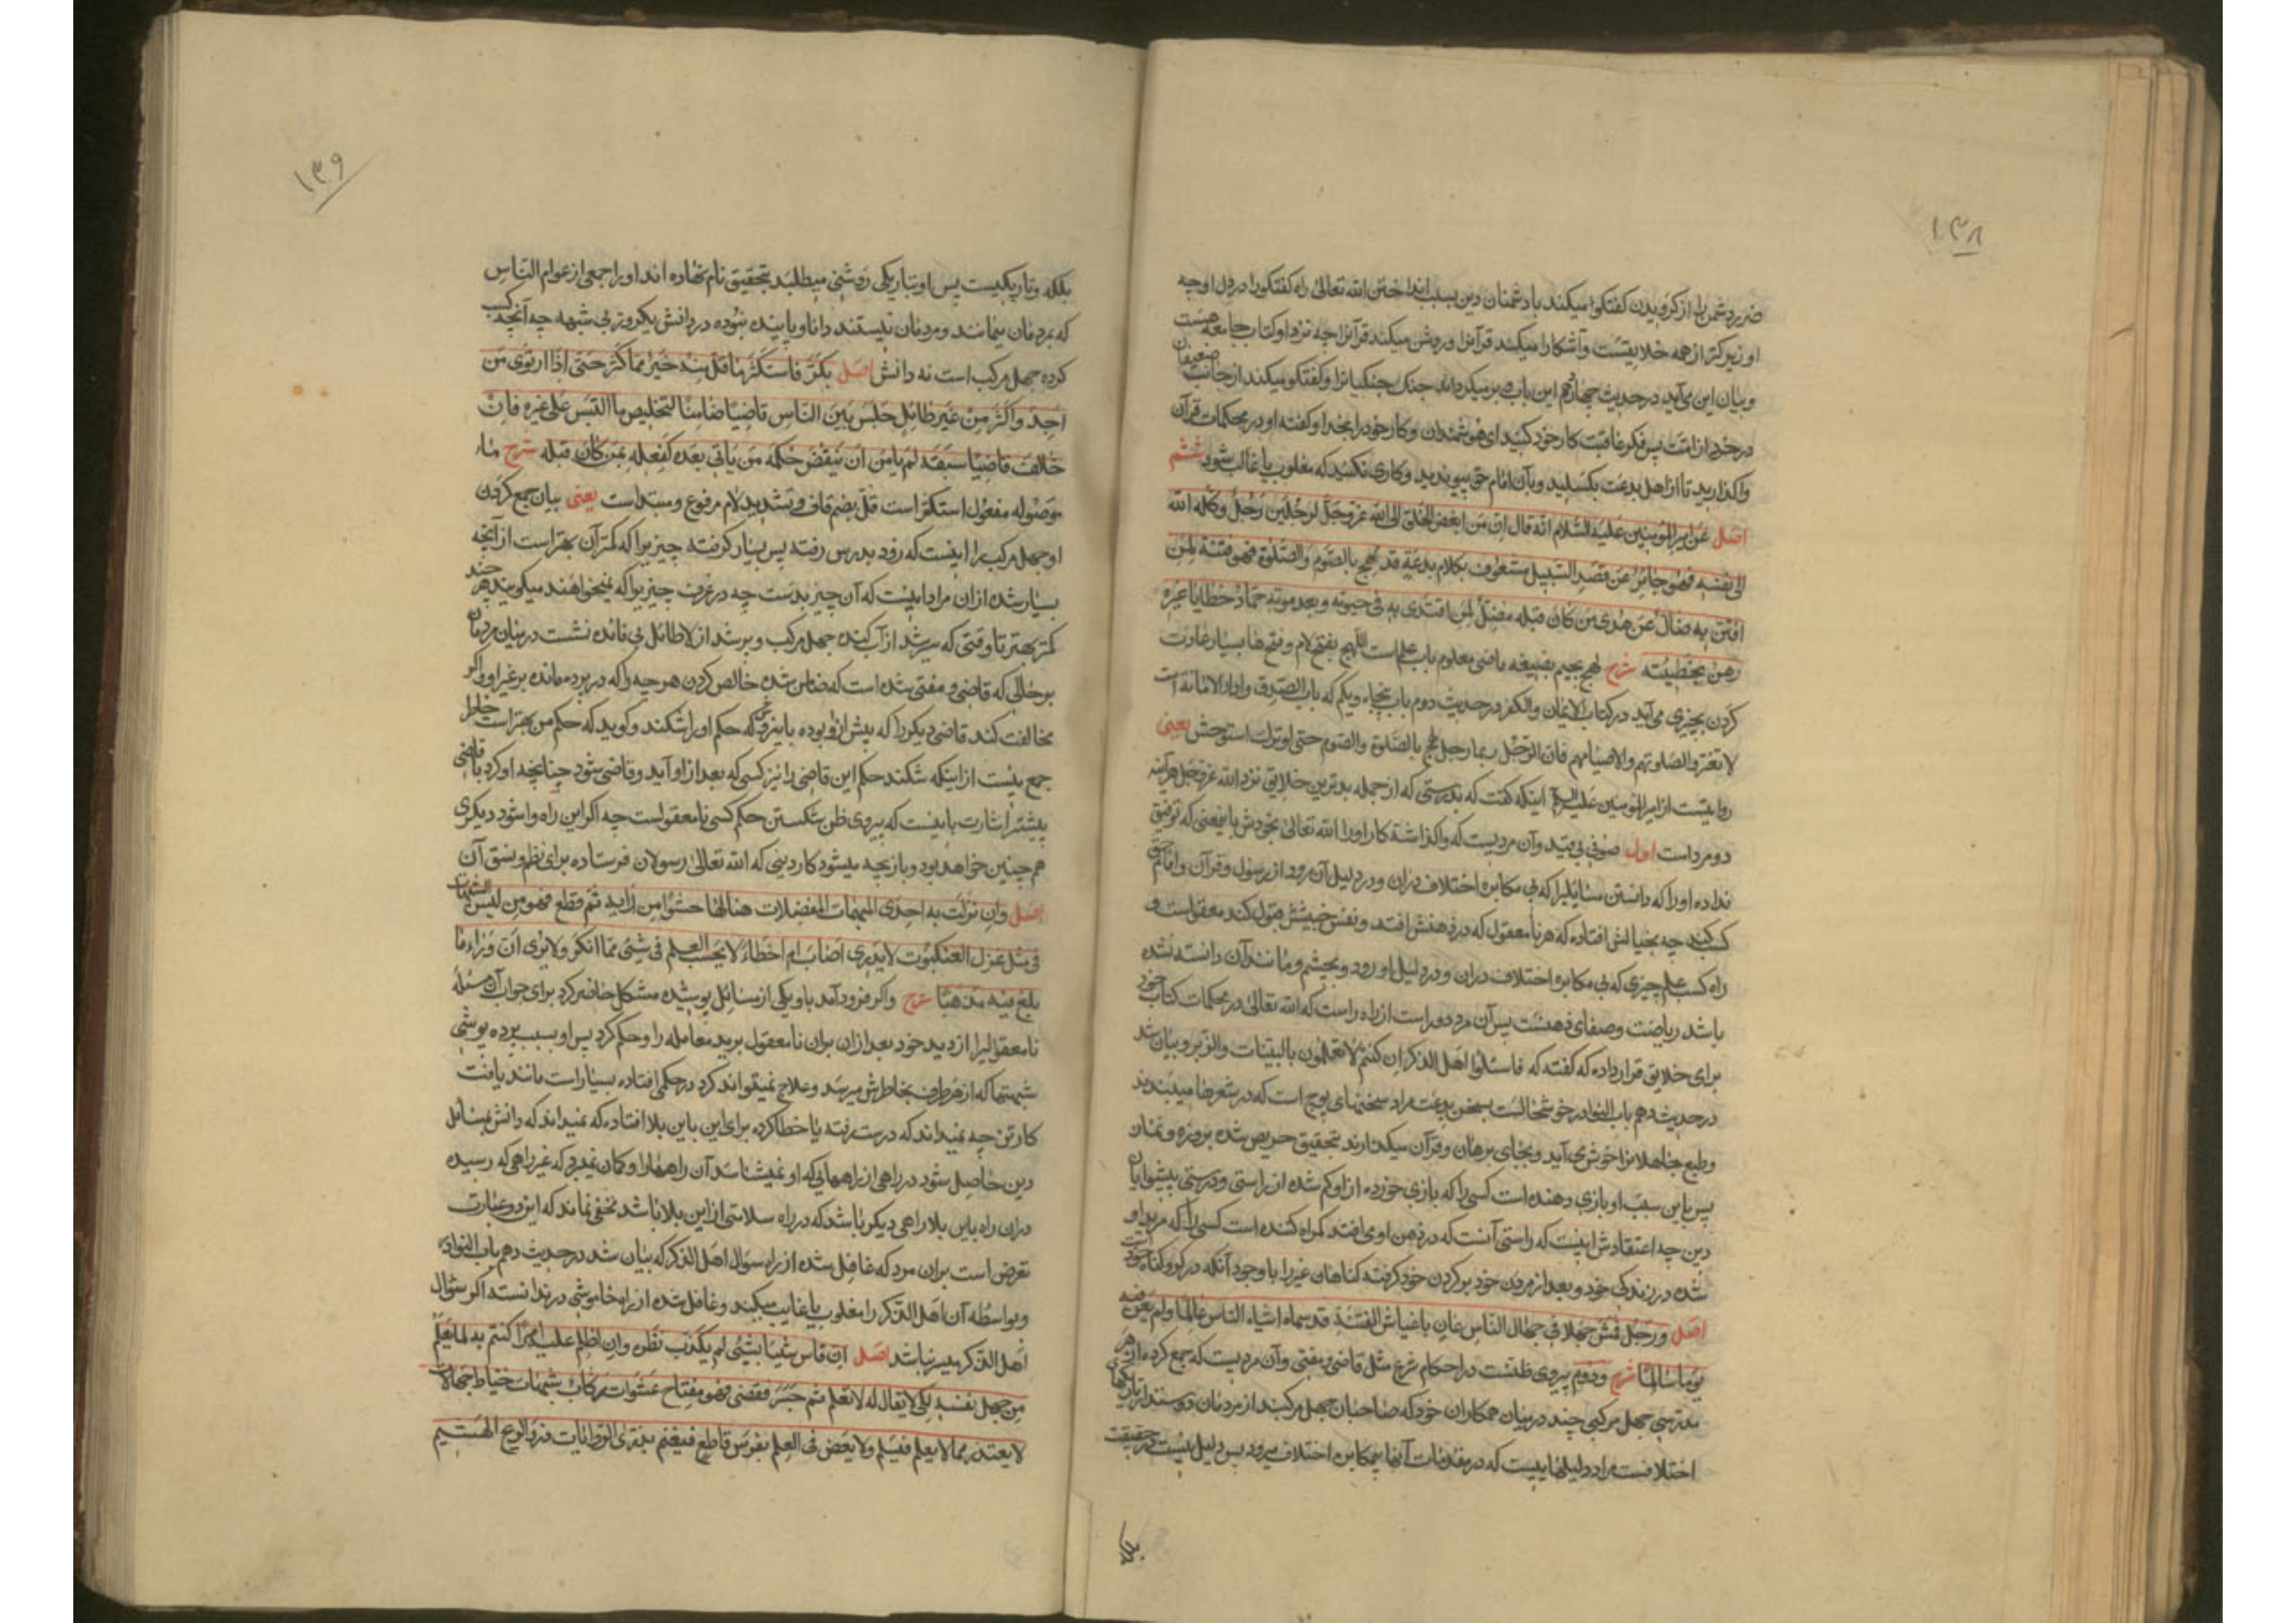 ۱۳۸
ضرر دشمن را از کرویدن کفتکوا میکند با دشمنان دین بسبب انداختن الله تعالی راه کفتکو را در دل او چه
او زیرکتر از همه خلایقست وآشکارا میکند قرآنرا وروشن میکند قرآنرا چه نزد او کتاب جامعه هست
وبیان این می آید در حدیث چهاردهم این باب وبر میکرداند جنک جنکیانرا وکفتکو میکند از جانب ضعیفان
در خرد از امت پس فکر عاقبت کار خود کنید ای هوشمندان وکار خود را بخدا وکفته او در محکمات قرآن
واکذارید تا از اهل بدعت بکسلید وبآن امام حق پیوندید وکاری نکنید که مغلوب یا غالب شود ششم
اصل عن امیر المؤمنین علیه السلام انه قال ان من ابغض الخلق الی الله عز وجل لرجلین رجل وکله الله
الی نفسه فهو جائر عن قصد السبیل مشعوف بکلام بدعة قد لهج بالصوم والصلوة فهو فتنة لمن
افتتن به ضال عن هدی من کان قبله مضل لمن اقتدی به فی حیوته وبعد موته حمال خطایا غیره
رهن بخطیئته شرح لهج بجیم بصیغه ماضی معلوم باب علم است اللهج بفتح لام وفتح ها بسیار عادت
کردن بچیزی می آید در کتاب الایمان والکفر در حدیث دوم باب پنجاه ویکم که باب الصدق واداء الامانه است
لا تغتروا بصلوتهم ولا بصیامهم فان الرجل ربما رجل لهج بالصلوة والصوم حتی لو ترکه استوحش یعنی
روایتست از امیر المؤمنین علیه السلام اینکه کفت که بدرستی که از جمله بدترین خلایق نزد الله عز وجل هرآینه
دو مرد است اول صوفی بی قید وآن مردیست که واکذاشته کار او را الله تعالی بخودش باینمعنی که توفیق
نداده او را که دانستن مسایلیرا که بی مکابره اختلاف دران ودر دلیل آن رود از رسول وقرآن وامام حق
کسب کند چه بخیالش افتاده که هر نامعقول که در ذهنش افتد ونفس خبیثش قبول کند معقول است و
راه کسب علم چیزی که بی مکابره اختلاف دران ودر دلیل او رود وبچشم ومانند آن دانسته نشده
باشد ریاضت وصفای ذهنست پس آن مرد دور است از راه راست که الله تعالی در محکمات کتاب خود
برای خلایق قرار داده که کفته که فاسئلوا اهل الذکر ان کنتم لا تعلمون بالبینات والزبر وبیان شد
در حدیث دهم باب النوادر خوشحالست بسخن بدعت مراد سخنهای پوچ است که در شعرها میبندند
وطبع جاهلانرا خوش می آید وبجای برهان وقرآن میکذارند بتحقیق حریص شده بروزه ونماز
پس باین سبب او بازی دهنده است کسی را که بازی خورده از او کم شده از راستی ودرستی پیشوایان
دین چه اعتقادش اینست که راستی آنست که در ذهن او می افتد کمراه کننده است کسی را که مرید او
شده در زندکی خود وبعد از مردن خود بر کردن خود کرفته کناهان غیر را با وجود آنکه در کرو کناه خود است
اصل ورجل قمش جهلا فی جهال الناس عان باغباش الفتنة قد سماه اشباه الناس عالما ولم یغن فیه
یوما سالما شرح ودوم پیروی ظنست در احکام شرع مثل قاضی ومفتی وآن مردیست که جمع کرده از هر
مدرسی جهل مرکبی چند در میان همکاران خود که صاحبان جهل مرکبند از مردمان دوستدار تاریکیهای
اختلافست مراد دلیلهاییست که در مقدمات آنها بیمکابره اختلاف میرود پس دلیل نیست در حقیقت
بلکه
۱۳۹
بلکه وتاریکیست پس او بتاریکی روشنی میطلبد بتحقیق نام نهاده اند او را جمعی از عوام الناس
که بمردمان میمانند ومردمان نیستند دانا ویابنده نبوده در دانش یکروز بی شبهه چه آنچه کسب
کرده جهل مرکب است نه دانش اصل بکر فاستکثر ما قل منه خیر مما کثر حتی اذا ارتوی من
اجن واکثر من غیر طائل جلس بین الناس قاضیا ضامنا لتخلیص ما التبس علی غیره فان
خالف قاضیا سبقه لم یامن ان ینقض حکمه من یاتی بعده کفعله بمن کان قبله شرح ماء
موصوله مفعول استکثر است قل بضم قاف وتشدید لام مرفوع ومبتداست یعنی بیان جمع کردن
او جهل مرکب را اینست که زود بدرس رفته پس بسیار کرفته چیزیرا که کمتر آن بهتر است از آنچه
بسیار شده از ان مراد اینست که آن چیز بدست چه در عرف چیزیرا که نمیخواهند میکویند هر چند
کمتر بهتر تا وقتی که سیر شد از آب کنده جهل مرکب وپر شد از لاطائل بی فائده نشست در میان مردمان
بر حالی که قاضی ومفتی شده است که ضامن شده خالص کردن هر چه را که در پرده مانده بر غیر او واکر
مخالفت کند قاضی دیکر را که پیش از او بوده باین روش که حکم او را شکند وکوید که حکم من بهتر است خاطر
جمع نیست از اینکه شکند حکم این قاضی را نیز کسی که بعد از او آید وقاضی شود چنانچه او کرد با قاضی
پیشتر اشارت باینست که بپیروی ظن شکستن حکم کسی نامعقولست چه اکر این راه وا شود دیکری
هم چنین خواهد بود وبازیچه میشود کار دینی که الله تعالی رسولان فرستاده برای نظم ونسق آن
اصل وان نزلت به احدی المبهمات المعضلات هیا لها حشوا من رایه ثم قطع فهو من لبس الشبهات
فی مثل غزل العنکبوت لا یدری اصاب ام اخطاء لا یحسب العلم فی شیئ مما انکر ولا یری ان وراء ما
بلغ فیه مذهبا شرح واکر فرود آمد باو یکی از مسائل پوشیده مشکل حاضر کرد برای جواب آن مسئله
نامعقولیرا از دید خود بعد از ان بران نامعقول برید معامله را وحکم کرد پس او بسبب پرده پوشی
شبهتها که از هر طرف بخاطرش میرسد وعلاج نمیتواند کرد در حکمی افتاده بسیار است مانند بافت
کارتن چه نمیداند که درست رفته یا خطا کرده برای این باین بلا افتاده که نمیداند که دانش بمسائل
دین حاصل شود در راهی از راههایی که او نمیشناسد آن راههارا وکمان نمیبرد که غیر راهی که رسیده
دران راه باین بلا راهی دیکر باشد که در راه سلامتی از این بلا باشد مخفی نماند که این دو عبارت
تعرض است بران مرد که غافل شده از راه سؤال اهل الذکر که بیان شد در حدیث دهم باب النوادر
وبواسطه آن اهل الذکر را مغلوب یا غایب میکند وغافل شده از راه خاموشی در ندانسته اکر سؤال
اهل الذکر میسر نباشد اصل ان قاس شیئا بشیئ لم یکذب نظره وان اظلم علیه امر اکتتم به لما یعلم
من جهل نفسه لکی لا یقال له لا یعلم ثم جسر فقضی فهو مفتاح عشوات رکاب شبهات خباط جهالات
لا یعتذر مما لا یعلم فیسلم ولا یعض فی العلم بضرس قاطع فیغنم یذری الروایات ذرو الریح الهشیم